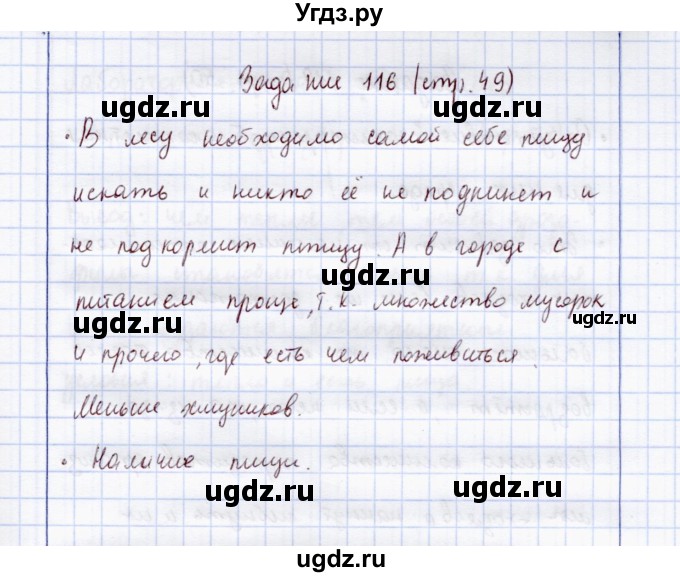 Угдз.ру
Задание 116 (стр. 49)
ugdz.ru ugdz.ru
• В лесу необходимо самой себе пищу
искать и никто её не подкинет и
не подкормит птицу. А в городе с
ugdz.ru ugdz.ru
питанием проще, т.к. множество мусорок
ugdz.ru ugdz.ru
и прочего, где есть чем поживиться.
Меньше хищников.
• Наличие пищи.
ugdz.ru ugdz.ru
ugdz.ru